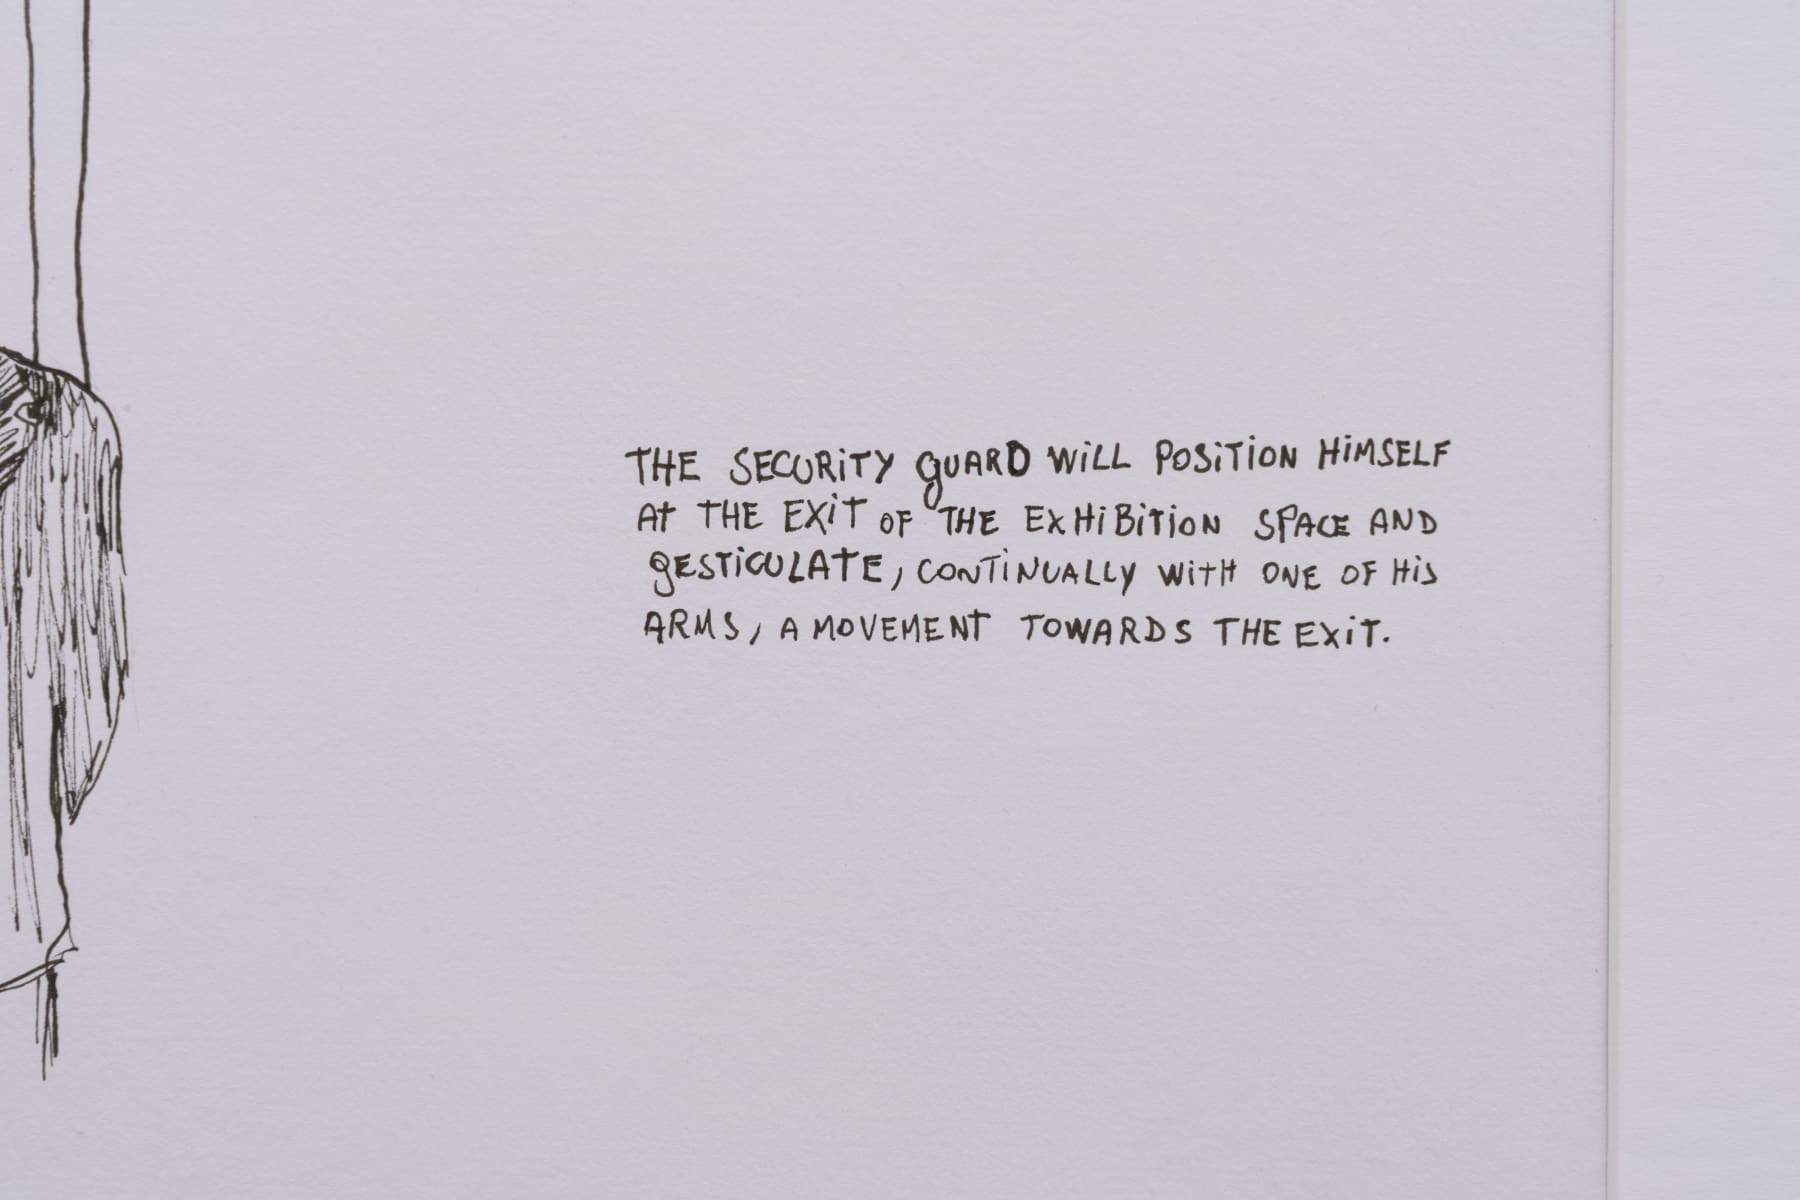 THE SECURITY GUARD WILL POSITION HIMSELF
AT THE EXIT OF THE EXHIBITION SPACE AND
GESTICULATE, CONTINUALLY WITH ONE OF HIS
ARMS, A MOVEMENT TOWARDS THE EXIT.